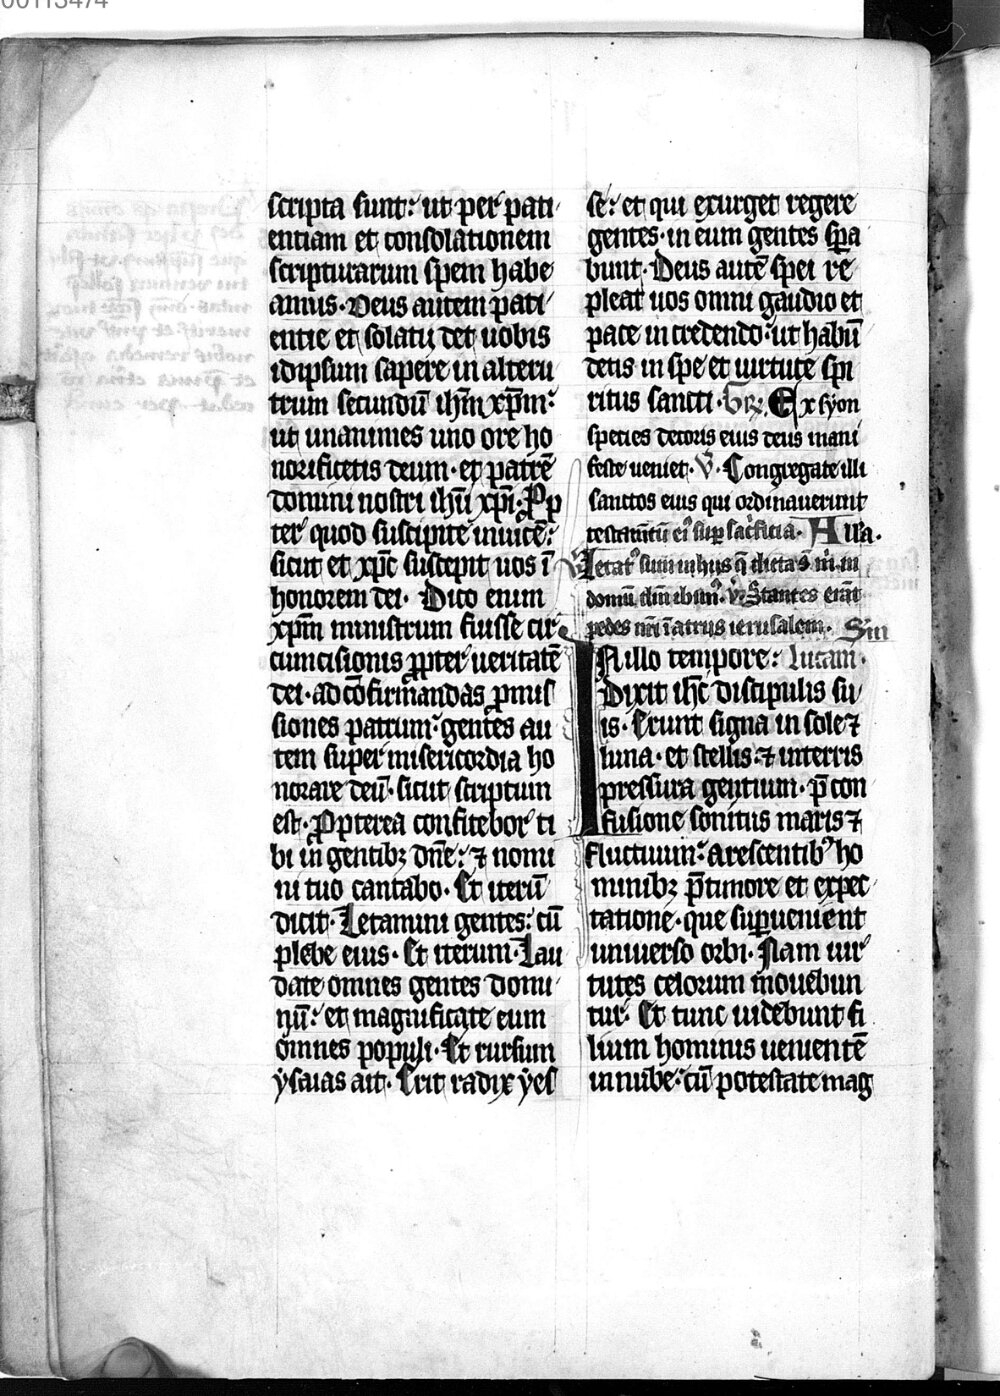 00113474
scripta sunt: ut per pati
entiam et consolationem
scripturarum spem habe
amus. Deus autem pati
entie et solatij det uobis
idipsum sapere in alteru
trum secundū ihm̄ xpm̄:
ut unanimes uno ore ho
norificetis deum. et patrē
domini nostri ihū xpi. Pp
ter quod suscipite inuicē:
sicut et xpc suscepit uos ī
honorem dei. Dico enim
xpm̄ ministrum fuisse cir
cumcisionis ꝓpter ueritatē
dei. ad cōfirmandas ꝓmis
siones patrum: gentes au
tem super misericordia ho
norare deū. sicut scriptum
est. Ꝓpterea confitebor ti
bi in gentibꝫ dn̄e: ⁊ nomi
ni tuo cantabo. Et iterū
dicit. Letamini gentes: cū
plebe eius. Et iterum. Lau
date omnes gentes domi
nū: et magnificate eum
omnes populi. Et rursum
ysaias ait. Erit radix yes
se: et qui exurget regere
gentes. in eum gentes spa
bunt. Deus autē spei re
pleat uos omni gaudio et
pace in credendo: ut habū
detis in spe et uirtute spi
ritus sancti. Gr̄. Ex syon
species decoris eius deus mani
feste ueniet. V̄. Congregate illi
sanctos eius qui ordinauerunt
testam̄tū eiꝰ suꝑ sac̄ficia. All'a.
Letatꝰ sum in hijs q̄ dicta s̄ m̄ in
domū dn̄i ibimꝰ. V̄ Stantes erāt
pedes nr̄i ī atrijs ierusalem. Sm
IN illo tempore: Lucam.
Dixit ihc̄ discipulis su
is. Erunt signa in sole ⁊
luna. et stellis: ⁊ in terris
pressura gentium. p̄ con
fusione sonitus maris ⁊
fluctuum: arescentibꝰ ho
minibꝫ p̄ timore et expec
tatione. que suꝑuenient
uniuerso orbi. Nam uir
tutes celorum mouebun
tur. Et tunc uidebunt fi
lium hominis uenientē
in nube: cū potestate mag